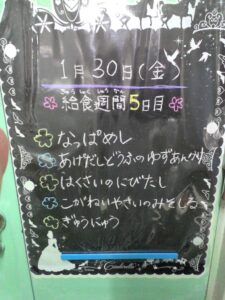 1月30日(金)
きゅうしょくしゅうかん
給食週間5日目
なっぱめし
あげだしどうふのゆずあんかけ
はくさいのにびたし
こがねいやさいのみそしる
ぎゅうにゅう
Cinderella